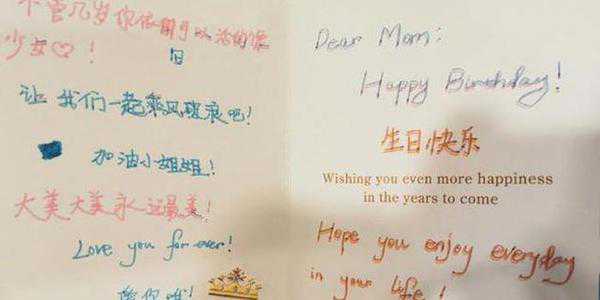 不管几岁你依旧可以活的像
少女♡！
让我们一起乘风破浪吧！
加油小姐姐！
大美大美永远最美！
Love you for ever!
爱你哦！
Dear Mom:
Happy Birthday!
生日快乐
Wishing you even more happiness
in the years to come
Hope you enjoy everyday
in your life!